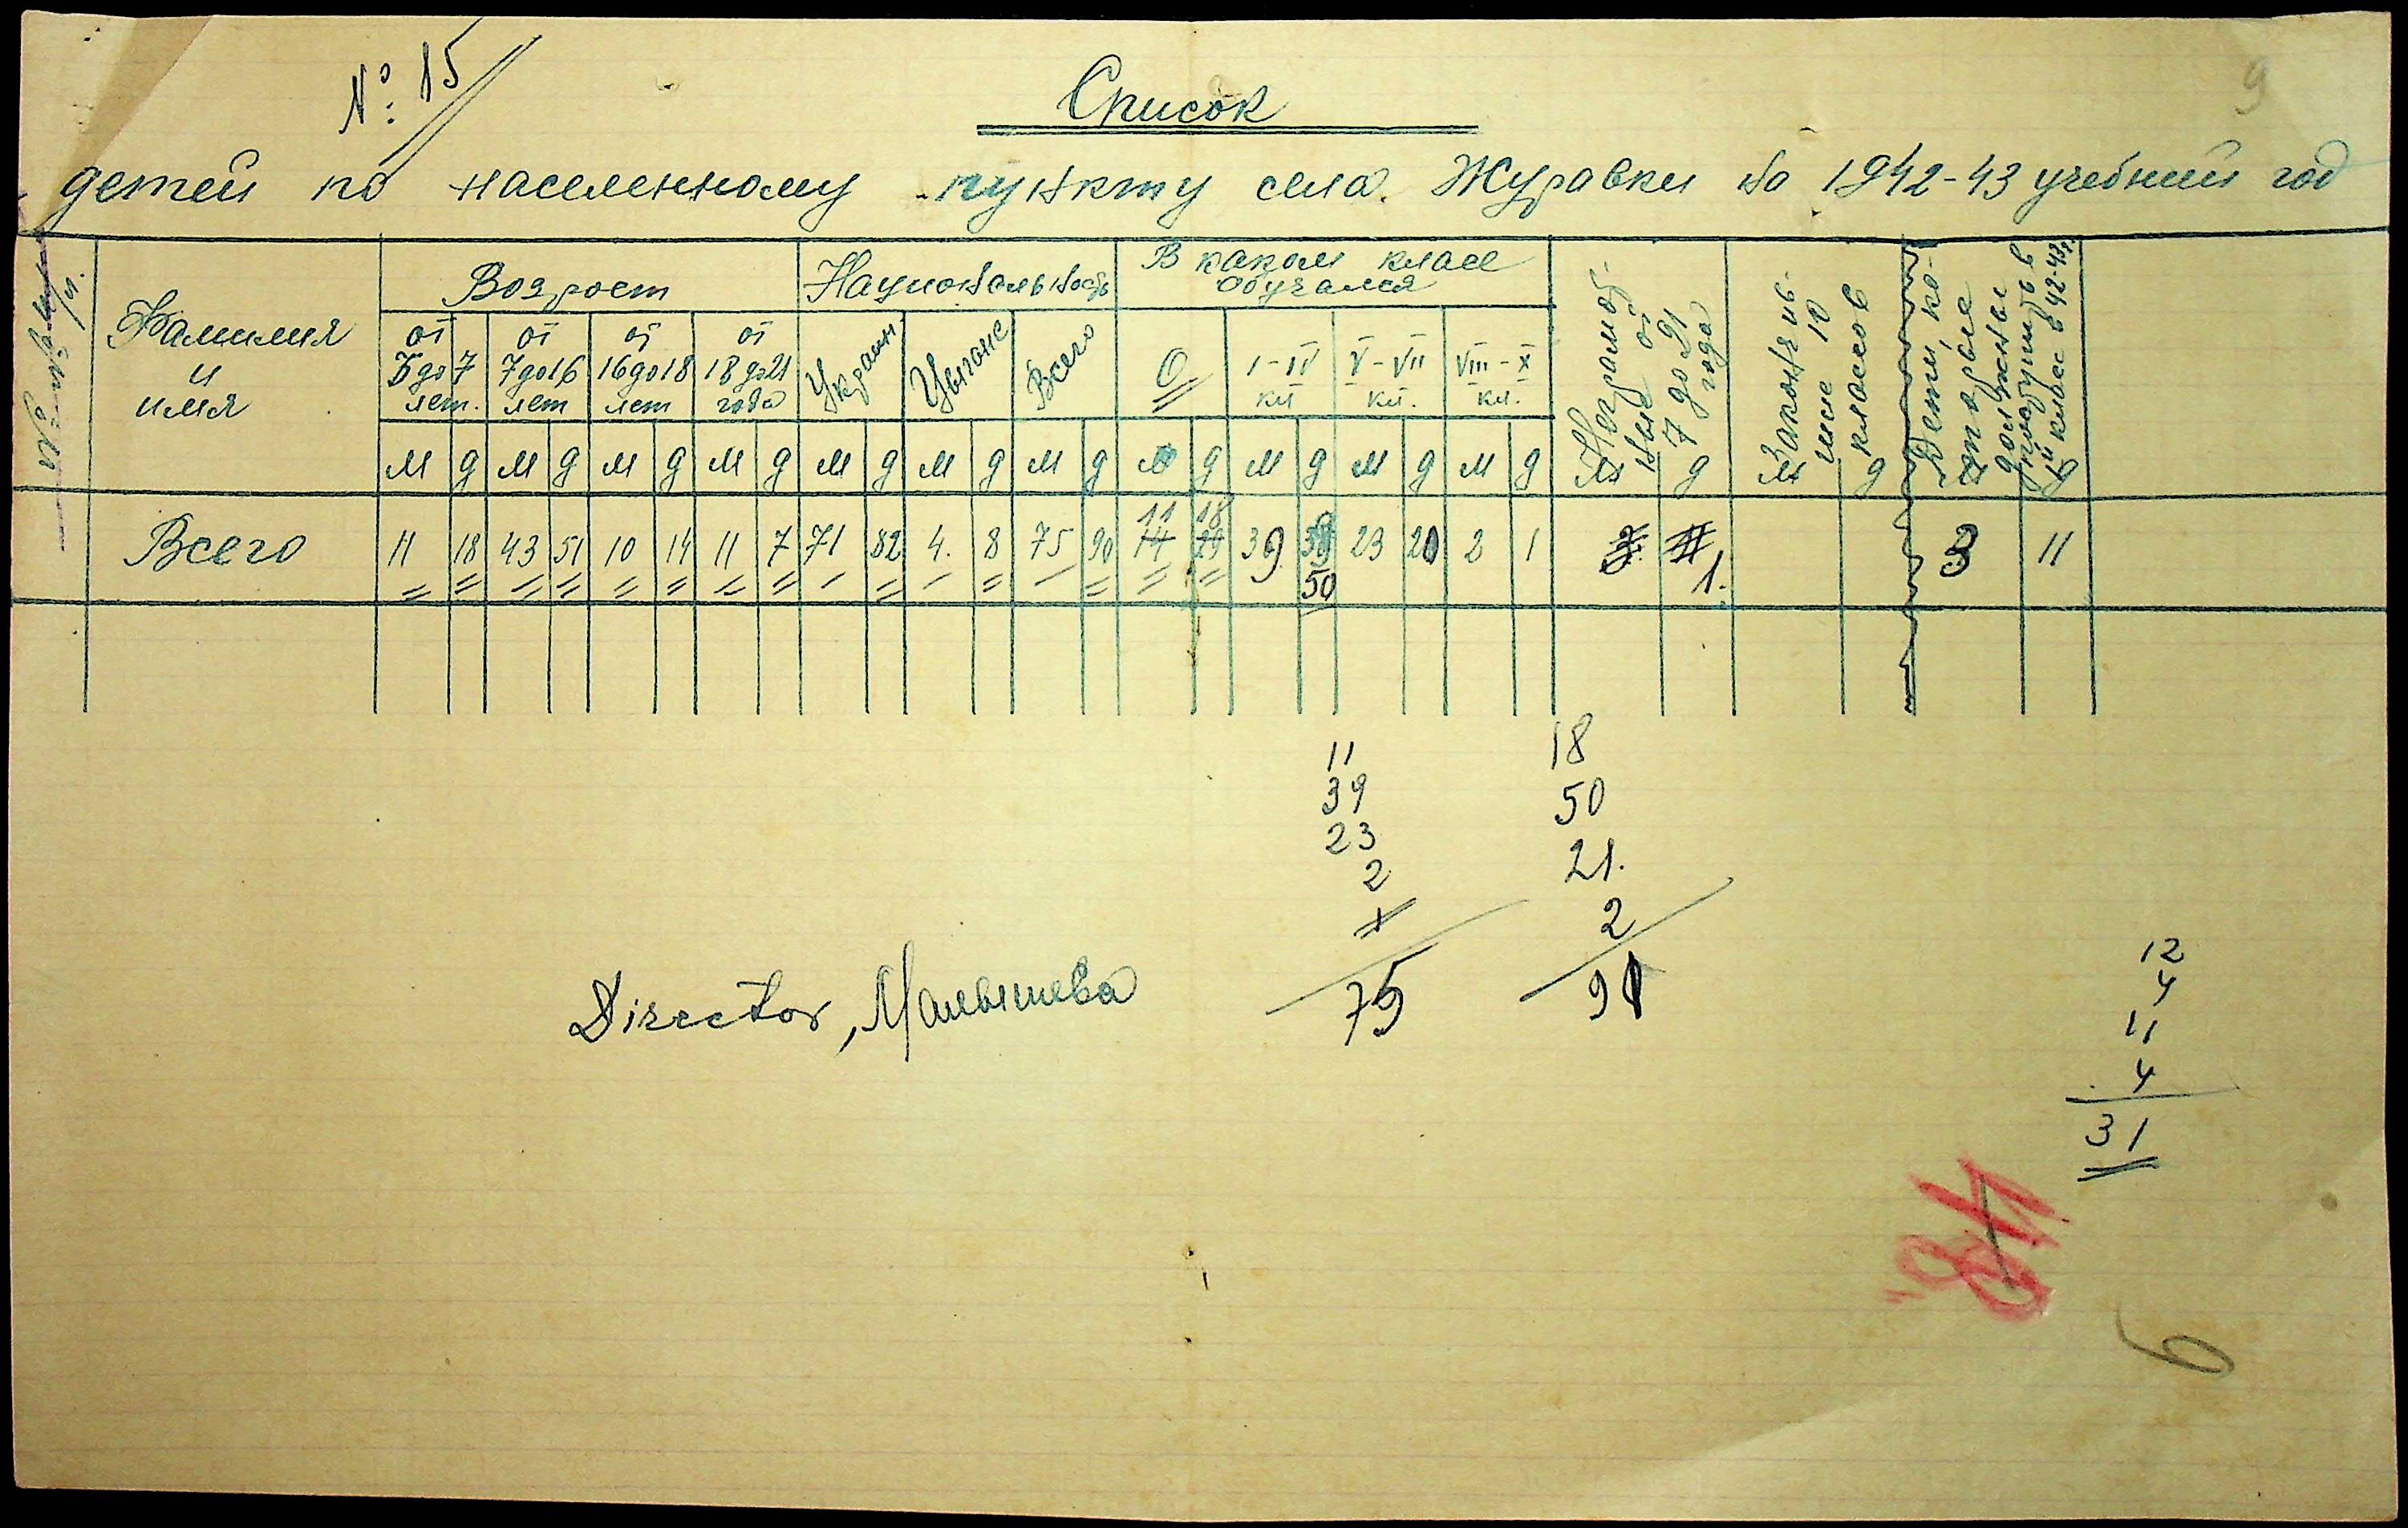 №: 15
9
Список
детей по населенному пункту села Журавки на 1942-43 учебный год
Фамилия и имя
Возраст
Национальность
В каком класе обучался
Неграмотные от 7 до 21 года
Закончившие 10 классов
Дети, которые должны
класс в 42-43
от 5 до 7 лет.
от 7 до 16 лет
от 16 до 18 лет
от 18 до 21 года
Украин.
Цыгане
Всего
0
I-IV кл
V-VII кл.
VIII-X кл.
м д м д м д м д м д м д м д м д м д м д м д м д м д м д
Всего 11 18 43 51 10 14 11 7 71 82 4. 8 75 90 11 18 39 50 23 20 2 1 1. 3 11
11 18
39 50
23 21.
2 2
75 91
Director, Малышева
12
4
11
4
31
6